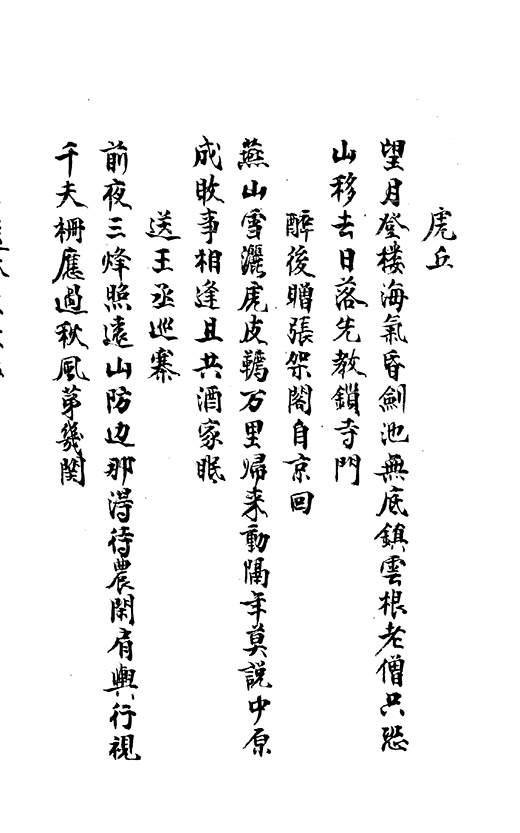 虎丘
望月登楼海氣昏劍池無底鎮雲根老僧只恐
山移去日落先教鎖寺門
醉後贈張架閣自京回
燕山雪灑虎皮韉万里帰来動隔年莫説中原
成敗事相逢且共酒家眠
送王丞巡寨
前夜三烽照遠山防边那得待農閑肩輿行視
千夫柵應過秋風第幾関